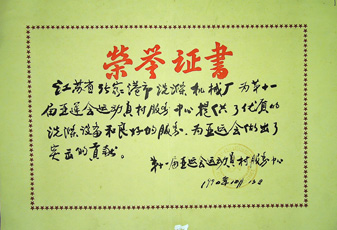 荣举证书
江苏省张家港市洗涤机械厂为第十一
届亚运会运动员村服务中心提供了优质的
洗涤设备和良好的服务,为亚运会做出了
突出的贡献。
第十一届亚运会运动员村服务中心
一九九〇年10月